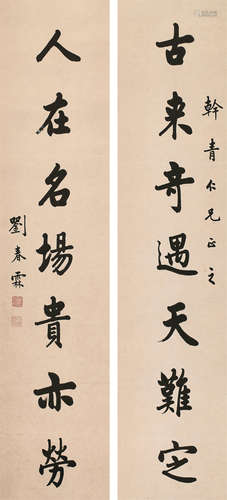 幹青仁兄正之
古来奇遇天難定
人在名場貴亦勞
劉春霖